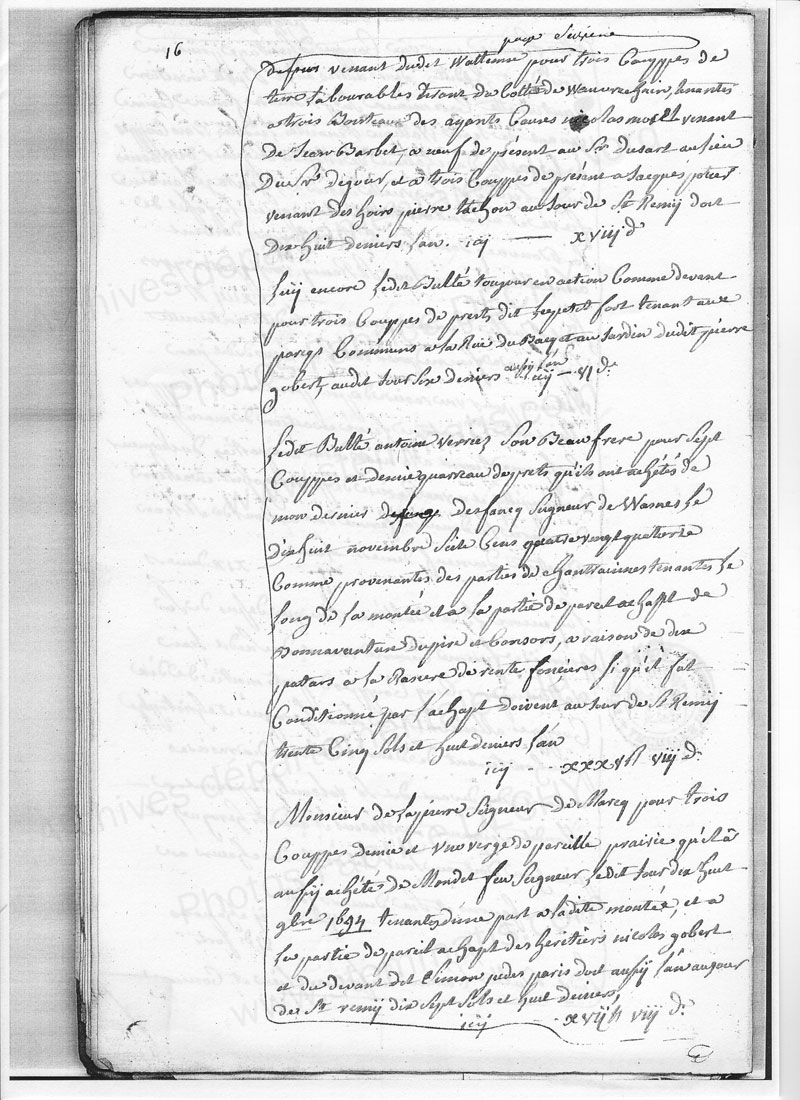 16
page Seizieme
venant dudit Wattenne pour trois Couppes de
terre Labourables tirant du Cotté de Wauvrechain, tenantes
a trois Boisteaux des ayants Causes nicolas venant
De Jean Barbet, a neuf de présent au Sr. Dusart au lieu
Du Sr. et a trois Couppes de présent a Jacques potier
venant des hoirs pierre au Jour de St Remij doit
Dix huit deniers L'an. icij — xviij d
Luij encore Ledit Bulté toujour en action Comme devant
pour trois Couppes de prets dit Lepetit fort tenant aux
pareqs Communs a la Rue du Bacq et au Jardin dudit pierre
gobert, audit Jour Six deniers aussij L'an icij — vi d.
Ledit Bulté antoine Verriez Son Beau frere pour Sept
Couppes et demie quarreau de prets qu'ils ont achétés de
mon dernier Desfancq Seigneur de Wasnes Le
Dixhuit novembre Seize Cens quatre vingt quatorze
Comme provenantes des parties de Chantrainnes tenantes Le
Long de La montée et a la partie de pareil achapt de
Bonnaventure Dupire et Consors, a raison de dix
patars a la Rasiere de rente foncieres Si qu'il fat
Conditionné par L'achapt doivent au Jour de St Remij
trente Cinq Sols et huit deniers L'an
icij - - xxxv s viij d.
Monsieur de Lapierre Seigneur De Marcq pour trois
Couppes demie et une verge de pareille prairie qu'il à
aussij achétés de Mondit feu Seigneur Ledit Jour dix huit
9bre 1694 tenantes d'une part a Ladite montée, et a
La partie de pareil achapt des héritiers nicolas gobert
et du devant dit paris doit aussij L'an au Jour
de St remij dix Sept Sols et huit deniers
icij - - xvij s viij d.